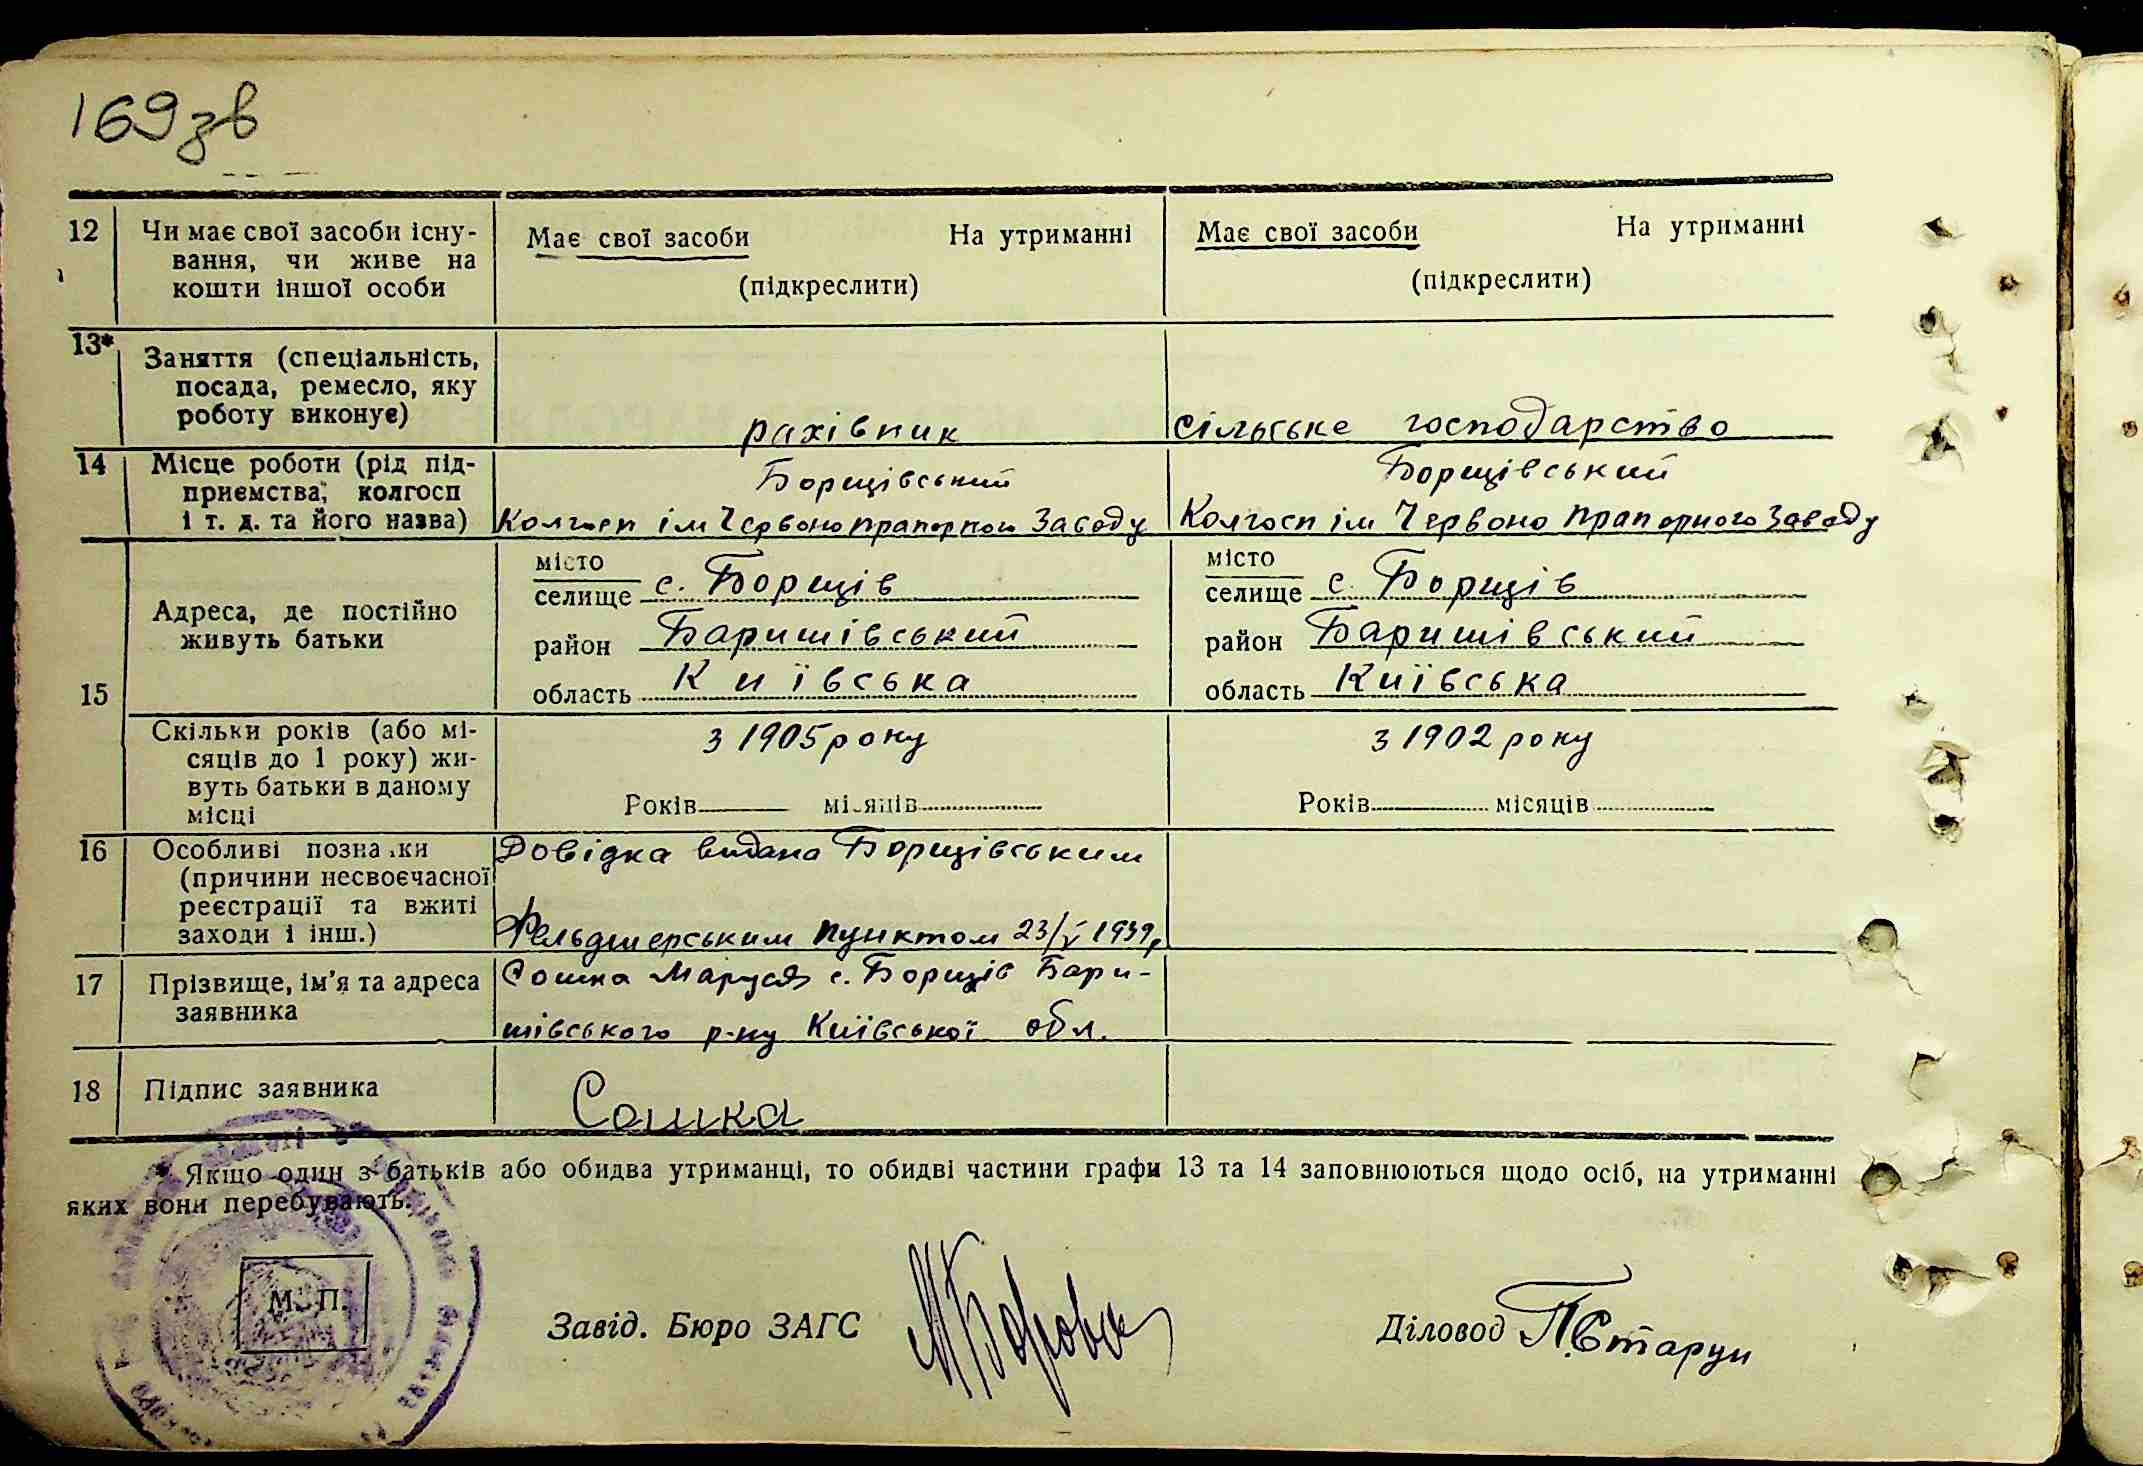 169 зв
12 Чи має свої засоби існу-
вання, чи живе на
кошти іншої особи
Має свої засоби На утриманні
(підкреслити)
Має свої засоби На утриманні
(підкреслити)
13* Заняття (спеціальність,
посада, ремесло, яку
роботу виконує)
рахівник
сільське господарство
14 Місце роботи (рід під-
приємства, колгосп
і т. д. та його назва)
Борщівський
Колгосп ім Червоно прапорного Заводу
Борщівський
Колгосп ім Червоно прапорного Заводу
15 Адреса, де постійно
живуть батьки
місто
селище с. Борщів
район Баришівський
область Київська
місто
селище с Борщів
район Баришівський
область Київська
Скільки років (або мі-
сяців до 1 року) жи-
вуть батьки в даному
місці
з 1905 року
Років місяців
з 1902 року
Років місяців
16 Особливі познаки
(причини несвоєчасної
реєстрації та вжиті
заходи і інш.)
Довідка видана Борщівським
Фельдшерським пунктом 23/V 1939р
17 Прізвище, ім'я та адреса
заявника
Сошка Маруся с. Борщів Бари-
шівського р-ну Київської обл.
18 Підпис заявника
Сошка
* Якщо один з батьків або обидва утриманці, то обидві частини графи 13 та 14 заповнюються щодо осіб, на утриманні
яких вони перебувають.
М. П.
Завід. Бюро ЗАГС
Діловод П. Старун